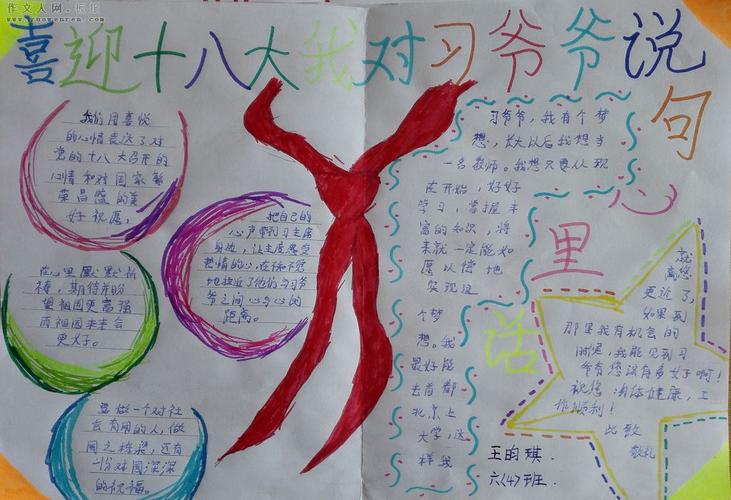 作文人网.标记
www.zuowenren.com
喜迎十八大我对习爷爷说
句
心
里
话
我们用喜悦
的心情表达了对
党的十八大召开的
心情和对国家繁
荣昌盛的美
好祝愿,
在心里默默祈
祷,期待并盼
望祖国更富强
而祖国未来会
更好。
要做一个对社
会有用的人,做
国之栋梁,还有
一份对国深深
的祝福。
把自己的
心声带到习主席
身边,让主席感受
热情的心,在
地拉近了他们与习爷
爷之间心与心的
距离。
习爷爷,我有个梦
想,长大以后我想当
一名教师。我想只要从现
在开始,好好
学习,掌握丰
富的知识,将
来就一定能如
愿以偿地
实现这
个梦
想。我
最好能
去首都
北京上
大学,这
样我
就
离您
更近了,
如果到
那里我有机会的
时候,我能见到习
爷爷您没有多好啊!
祝您 身体健康,工
作顺利!
此致
敬礼
王昀琪.
六(4)班.